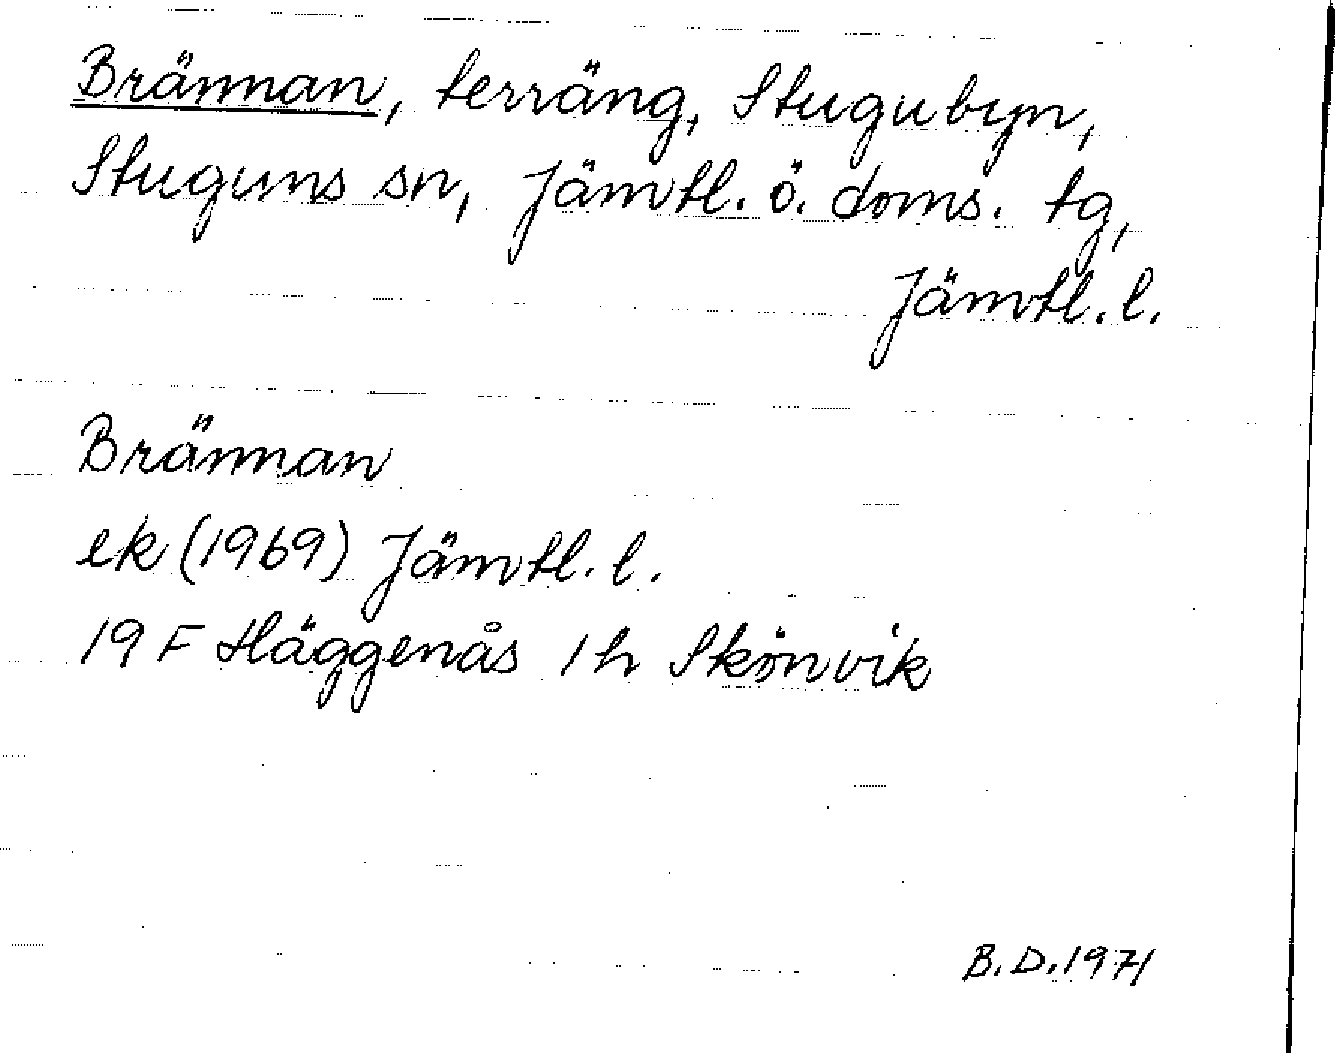 Brännan, terräng, Stugubyn,
Stuguns sn, Jämtl. ö. doms. tg,
Jämtl. l.
Brännan
ek (1969) Jämtl. l.
19 F Häggenås 1 h Skönvik
B. D. 1971